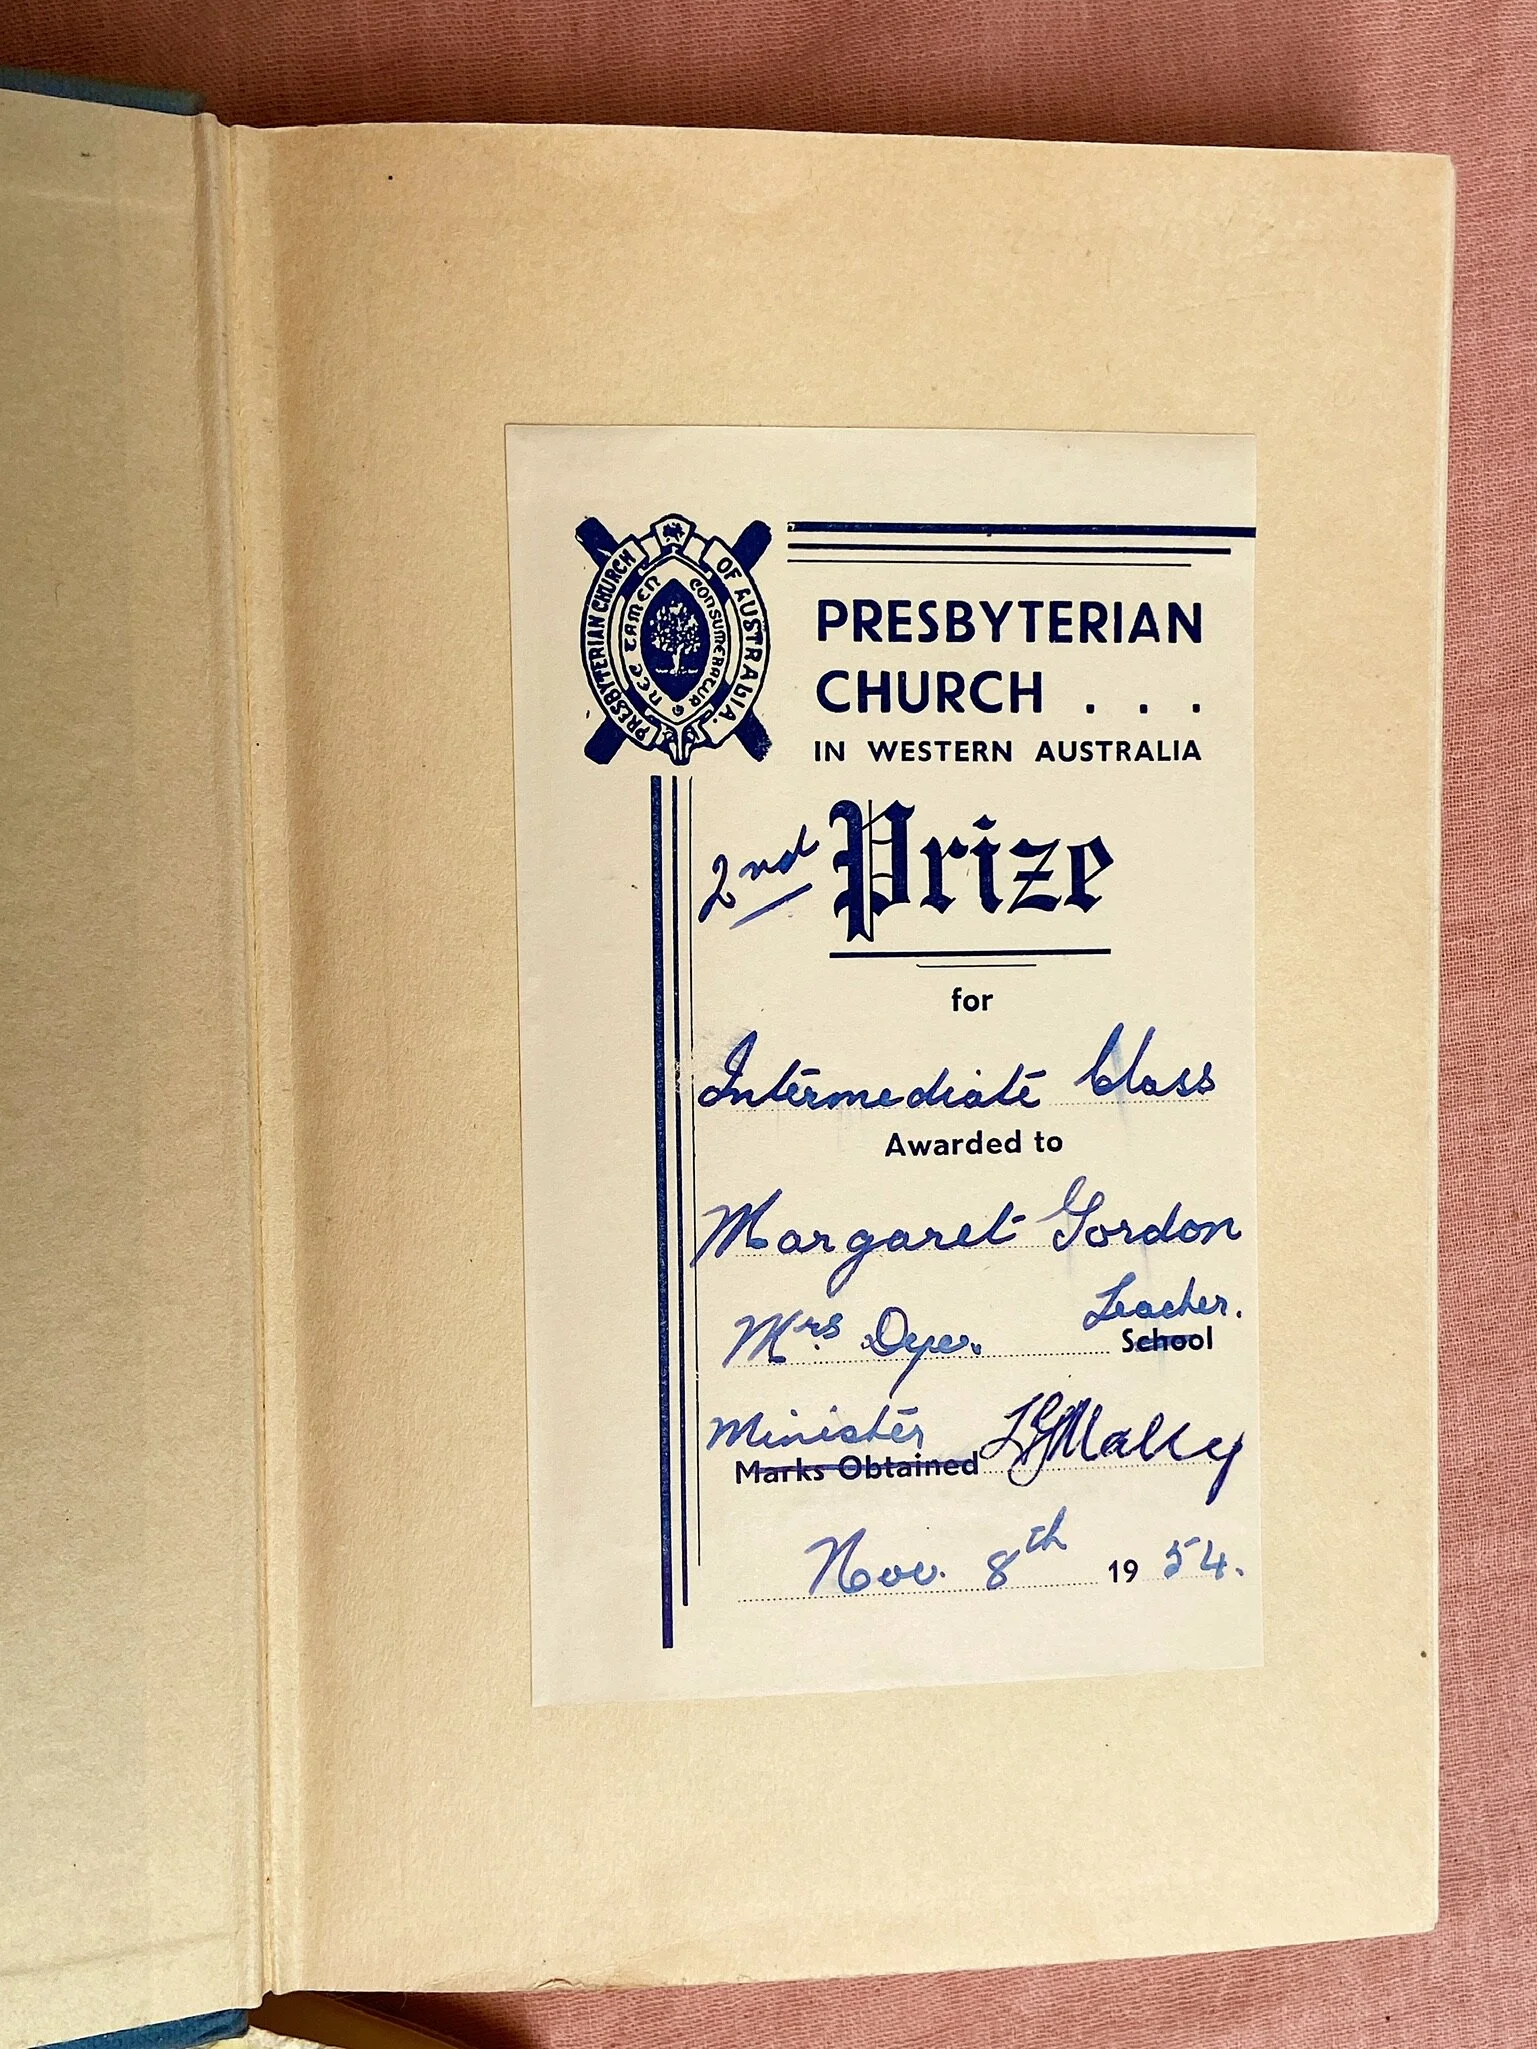 PRESBYTERIAN CHURCH OF AUSTRALIA.
NEC TAMEN CONSUMEBATUR
PRESBYTERIAN
CHURCH . . .
IN WESTERN AUSTRALIA
2nd Prize
for
Intermediate Class
Awarded to
Margaret Gordon
Teacher.
Mrs Dye. School
Minister
Marks Obtained
Nov. 8th 1954.